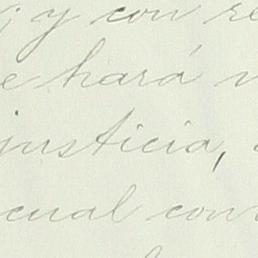 ; y con re
e hará
justicia,
cual con